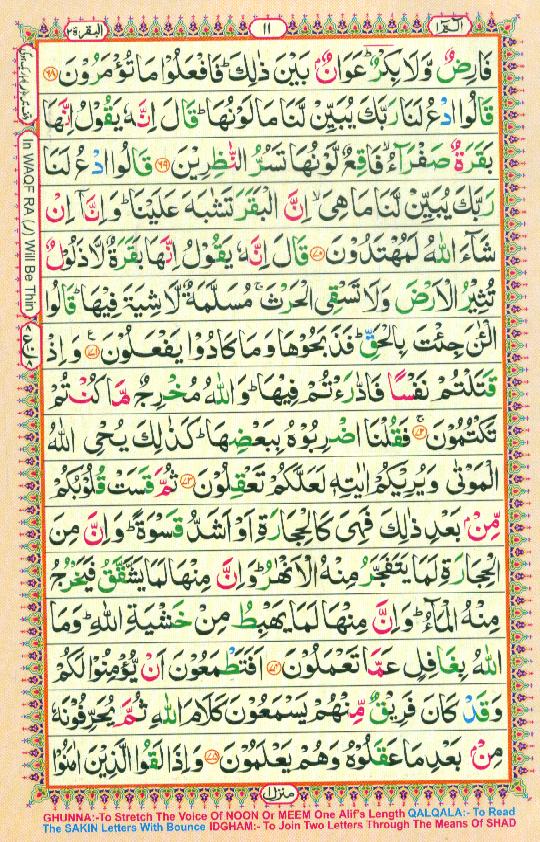 الٓمّٓ ١
١١
البقرة ٢
فَارِضٌ وَّلَا بِكْرٌ ؕ عَوَانٌۢ بَيْنَ ذٰلِكَ ؕ فَافْعَلُوْا مَا تُؤْمَرُوْنَ ﴿۶۸﴾
قَالُوا ادْعُ لَنَا رَبَّكَ يُبَيِّنْ لَّنَا مَا لَوْنُهَا ؕ قَالَ اِنَّهٗ يَقُوْلُ اِنَّهَا
بَقَرَةٌ صَفْرَآءُ ۙ فَاقِعٌ لَّوْنُهَا تَسُرُّ النّٰظِرِيْنَ ﴿۶۹﴾ قَالُوا ادْعُ لَنَا
رَبَّكَ يُبَيِّنْ لَّنَا مَا هِىَ ۙ اِنَّ الْبَقَرَ تَشٰبَهَ عَلَيْنَا ؕ وَاِنَّاۤ اِنْ
شَآءَ اللّٰهُ لَمُهْتَدُوْنَ ﴿۷۰﴾ قَالَ اِنَّهٗ يَقُوْلُ اِنَّهَا بَقَرَةٌ لَّا ذَلُوْلٌ
تُثِيْرُ الْاَرْضَ وَلَا تَسْقِى الْحَرْثَ ۚ مُسَلَّمَةٌ لَّا شِيَةَ فِيْهَا ؕ قَالُوا
الْـٰٔنَ جِئْتَ بِالْحَقِّ ؕ فَذَبَحُوْهَا وَمَا كَادُوْا يَفْعَلُوْنَ ﴿۷۱﴾ وَاِذْ
قَتَلْتُمْ نَفْسًا فَادّٰرَءْتُمْ فِيْهَا ؕ وَاللّٰهُ مُخْرِجٌ مَّا كُنْتُمْ
تَكْتُمُوْنَ ﴿۷۲﴾ ۚ فَقُلْنَا اضْرِبُوْهُ بِبَعْضِهَا ؕ كَذٰلِكَ يُحْىِ اللّٰهُ
الْمَوْتٰى ۙ وَيُرِيْكُمْ اٰيٰتِهٖ لَعَلَّكُمْ تَعْقِلُوْنَ ﴿۷۳﴾ ثُمَّ قَسَتْ قُلُوْبُكُمْ
مِّنْۢ بَعْدِ ذٰلِكَ فَهِىَ كَالْحِجَارَةِ اَوْ اَشَدُّ قَسْوَةً ؕ وَاِنَّ مِنَ
الْحِجَارَةِ لَمَا يَتَفَجَّرُ مِنْهُ الْاَنْهٰرُ ؕ وَاِنَّ مِنْهَا لَمَا يَشَّقَّقُ فَيَخْرُجُ
مِنْهُ الْمَآءُ ؕ وَاِنَّ مِنْهَا لَمَا يَهْبِطُ مِنْ خَشْيَةِ اللّٰهِ ؕ وَمَا
اللّٰهُ بِغَافِلٍ عَمَّا تَعْمَلُوْنَ ﴿۷۴﴾ اَفَتَطْمَعُوْنَ اَنْ يُّؤْمِنُوْا لَكُمْ
وَقَدْ كَانَ فَرِيْقٌ مِّنْهُمْ يَسْمَعُوْنَ كَلَامَ اللّٰهِ ثُمَّ يُحَرِّفُوْنَهٗ
مِنْۢ بَعْدِ مَا عَقَلُوْهُ وَهُمْ يَعْلَمُوْنَ ﴿۷۵﴾ وَاِذَا لَقُوا الَّذِيْنَ اٰمَنُوْا
In WAQF RA (ر) Will Be Thin
منزل ١
GHUNNA:-To Stretch The Voice Of NOON Or MEEM One Alif's Length QALQALA:- To Read
The SAKIN Letters With Bounce IDGHAM:- To Join Two Letters Through The Means Of SHAD